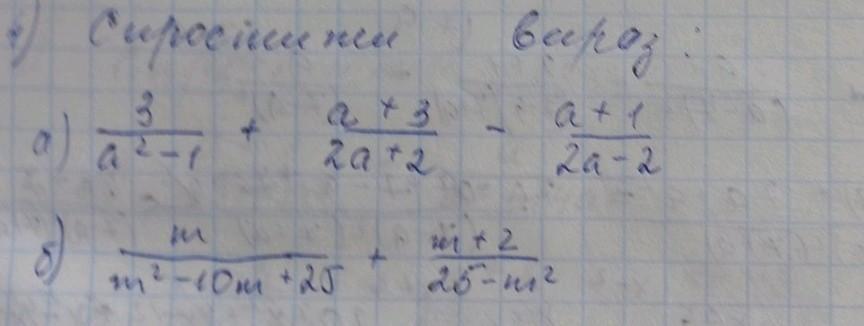 1) Спростити вираз:
а) 3/(a² - 1) + (a + 3)/(2a + 2) - (a + 1)/(2a - 2)
б) m/(m² - 10m + 25) + (m + 2)/(25 - m²)